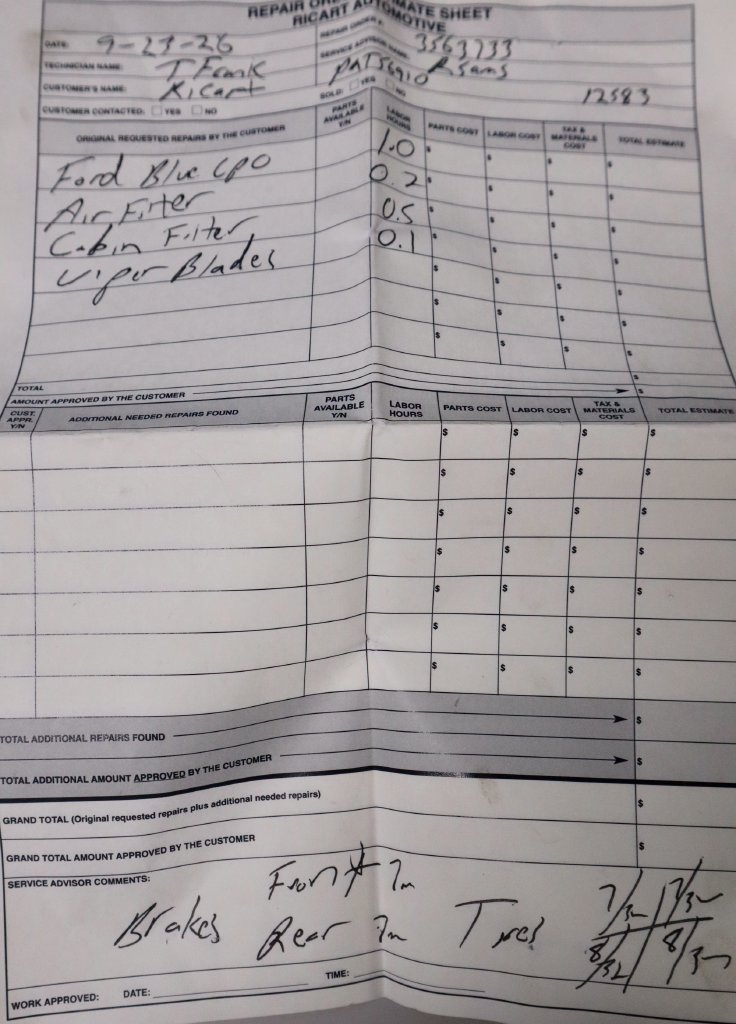 REPAIR ORDER ESTIMATE SHEET
RICART AUTOMOTIVE
DATE: 9-23-26 REPAIR ORDER #: 3563733
TECHNICIAN NAME: T Frank SERVICE ADVISOR NAME: Rsams
CUSTOMER'S NAME: Ricart SOLD: YES NO 12583
CUSTOMER CONTACTED: YES NO
ORIGINAL REQUESTED REPAIRS BY THE CUSTOMER PARTS AVAILABLE Y/N LABOR HOURS PARTS COST LABOR COST TAX & MATERIALS COST TOTAL ESTIMATE
Ford Blue CPO 1.0 $ $ $ $
Air Filter 0.2 $ $ $ $
Cabin Filter 0.5 $ $ $ $
Wiper Blades 0.1 $ $ $ $
$ $ $ $
$ $ $ $
$ $ $ $
TOTAL $
AMOUNT APPROVED BY THE CUSTOMER $
CUST. APPR. Y/N ADDITIONAL NEEDED REPAIRS FOUND PARTS AVAILABLE Y/N LABOR HOURS PARTS COST LABOR COST TAX & MATERIALS COST TOTAL ESTIMATE
$ $ $ $
$ $ $ $
$ $ $ $
$ $ $ $
$ $ $ $
$ $ $ $
$ $ $ $
TOTAL ADDITIONAL REPAIRS FOUND $
TOTAL ADDITIONAL AMOUNT APPROVED BY THE CUSTOMER $
GRAND TOTAL (Original requested repairs plus additional needed repairs) $
GRAND TOTAL AMOUNT APPROVED BY THE CUSTOMER $
SERVICE ADVISOR COMMENTS:
Front 7m 7/32 7/32
Brakes Rear 7m Tires 8/32 8/32
WORK APPROVED: DATE: TIME: